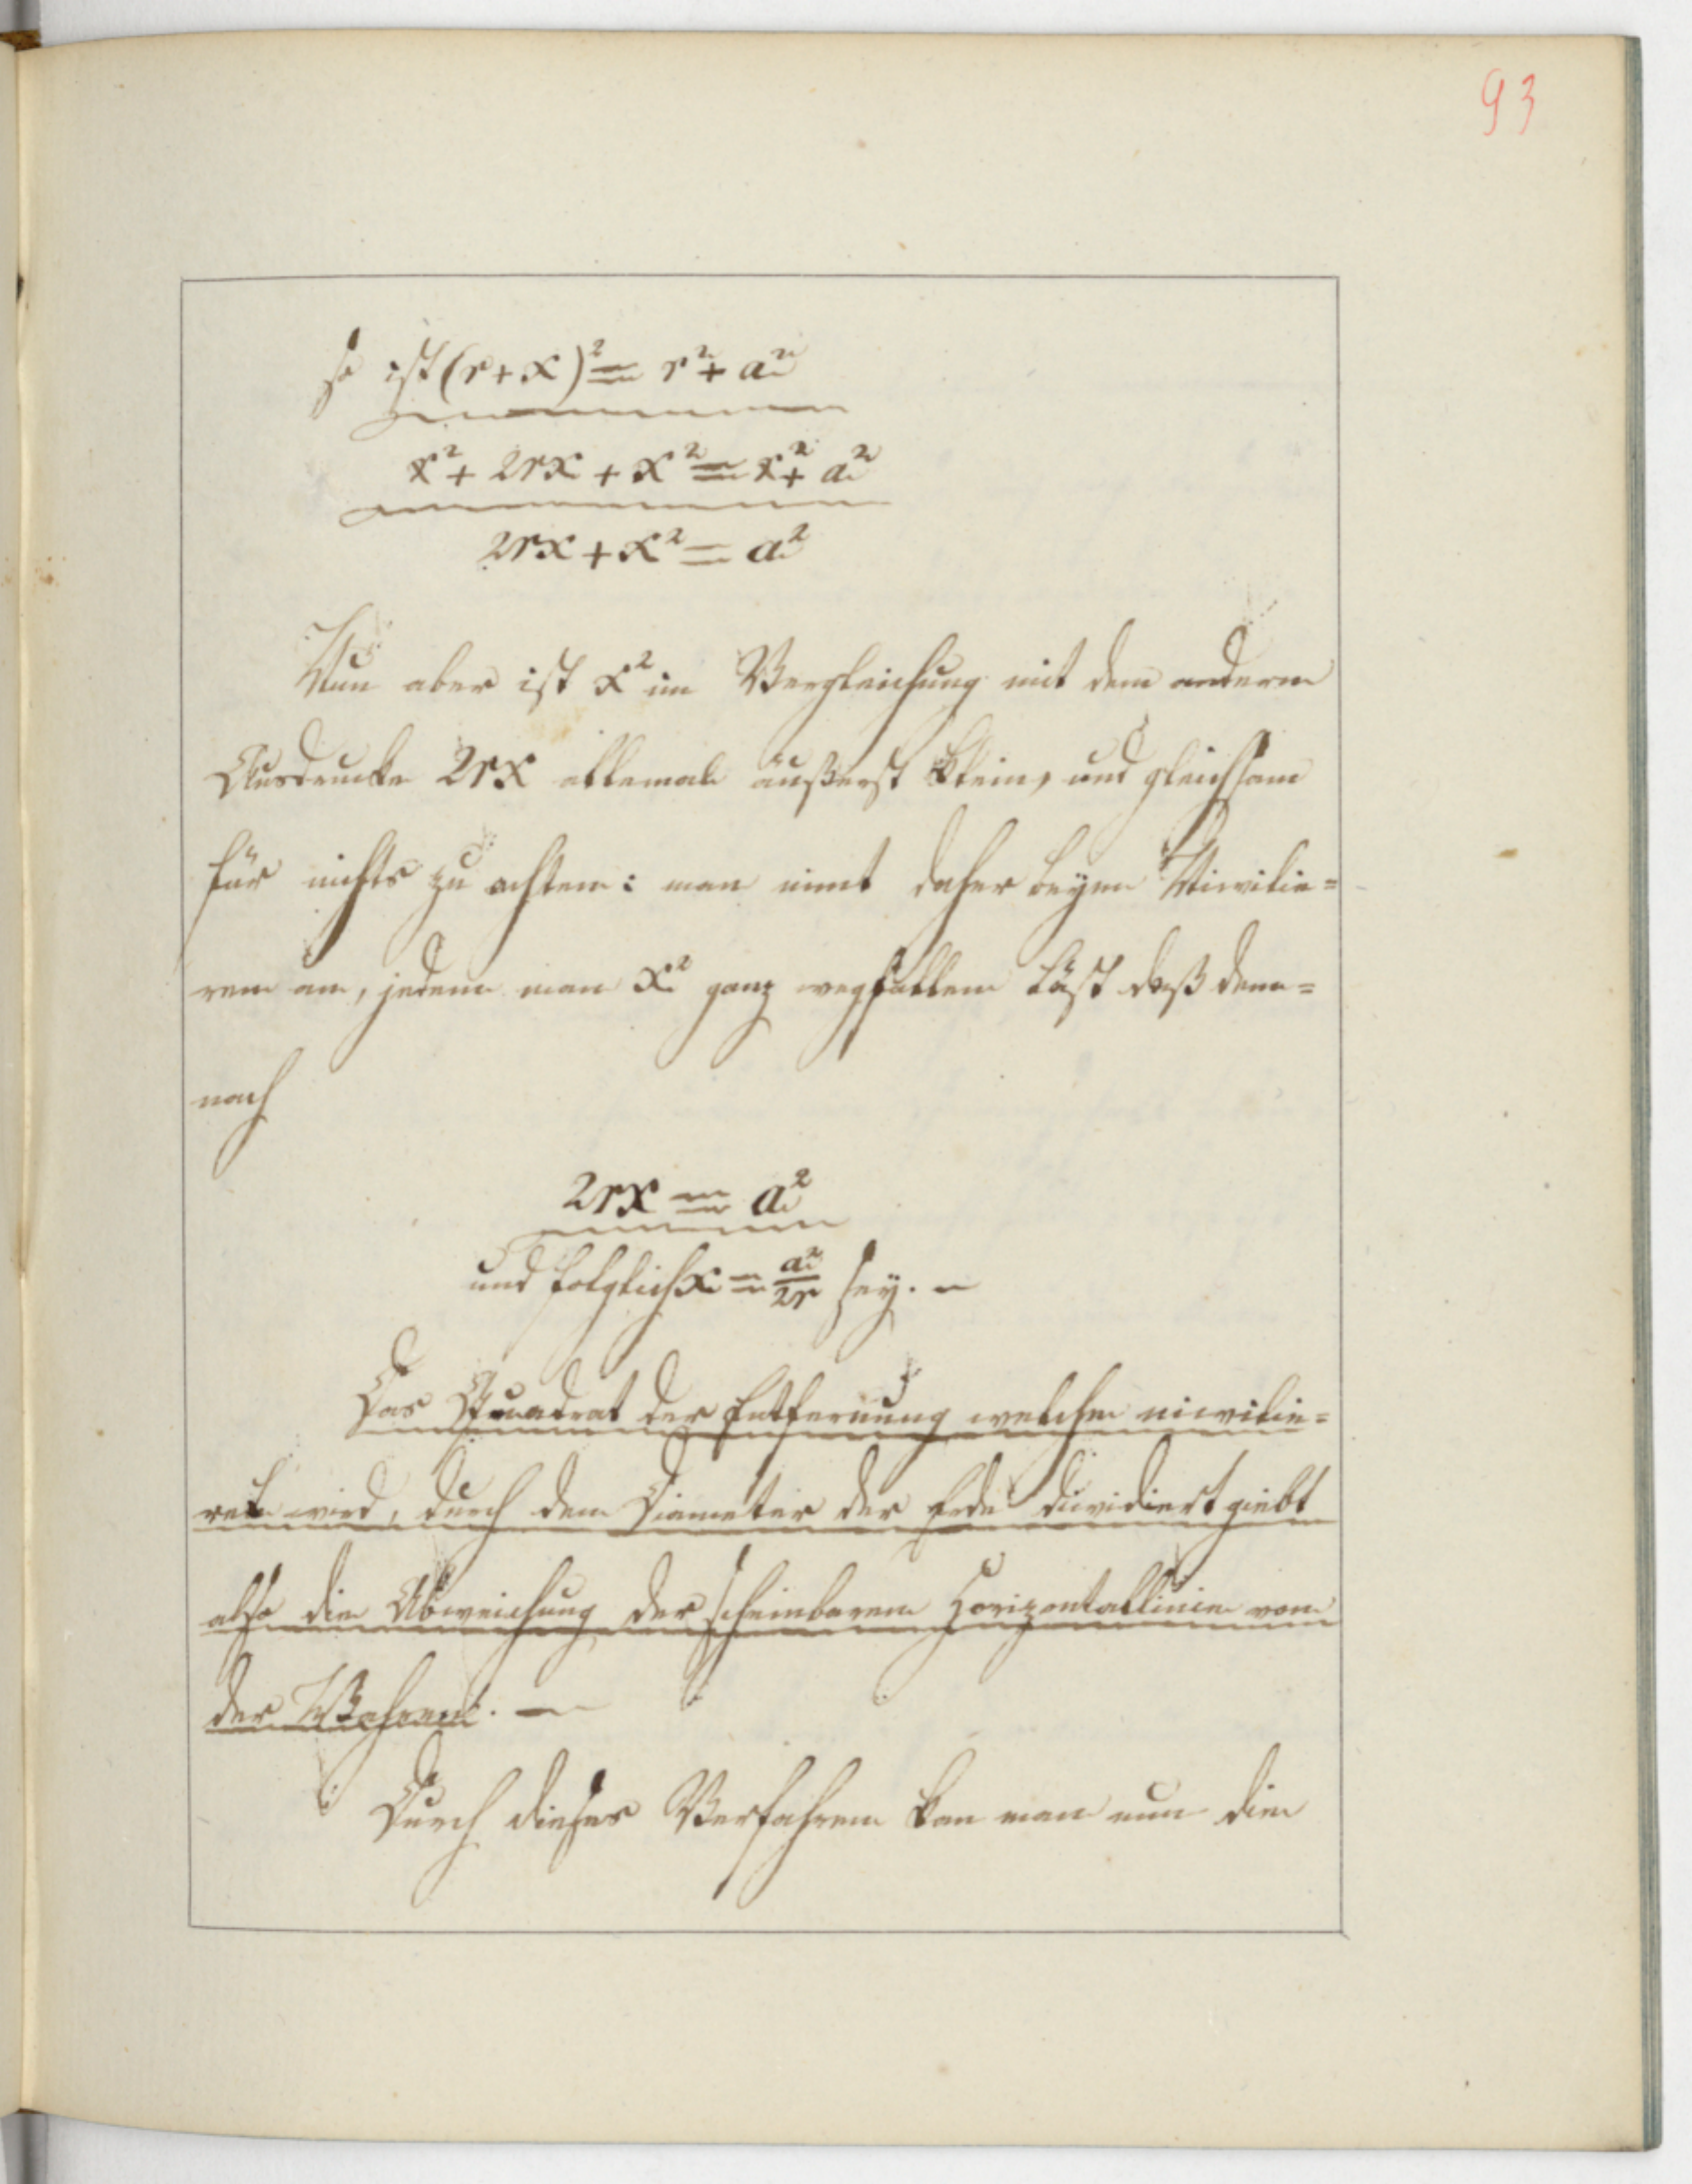 93
so ist (r+x)² = r² + a²
r² + 2rx + x² = r² + a²
2rx + x² = a²
Nun aber ist x² im Vergleichung mit dem anderen
Ausdrucke 2rx allemal äußerst klein, und gleichsam
für nichts zu achten: man nimt daher beym Nivilie=
ren an, jedem man x² ganz wegfallen läst daß dem=
nach
2rx = a²
und folglich x = a²/2r sey. –
Das Quadrat der Entfernung welche nivilie=
ret wird, durch den Diameter der Erde dividiert giebt
also die Abweichung der scheinbaren Horizontallinie von
der Wahren. –
Durch dieses Verfahren kan man nun die